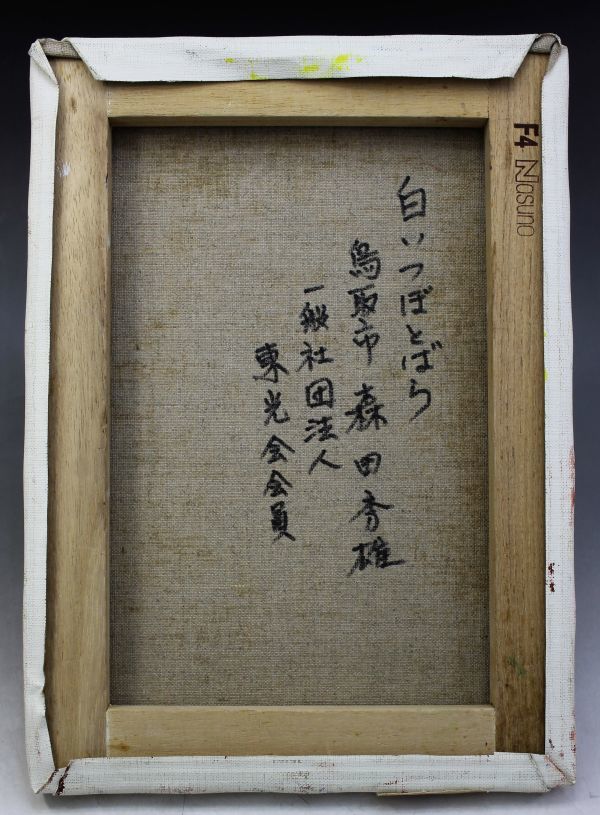 白いつぼとばら
鳥取市 森田秀雄
一般社団法人
東光会会員
F4 Nasuno